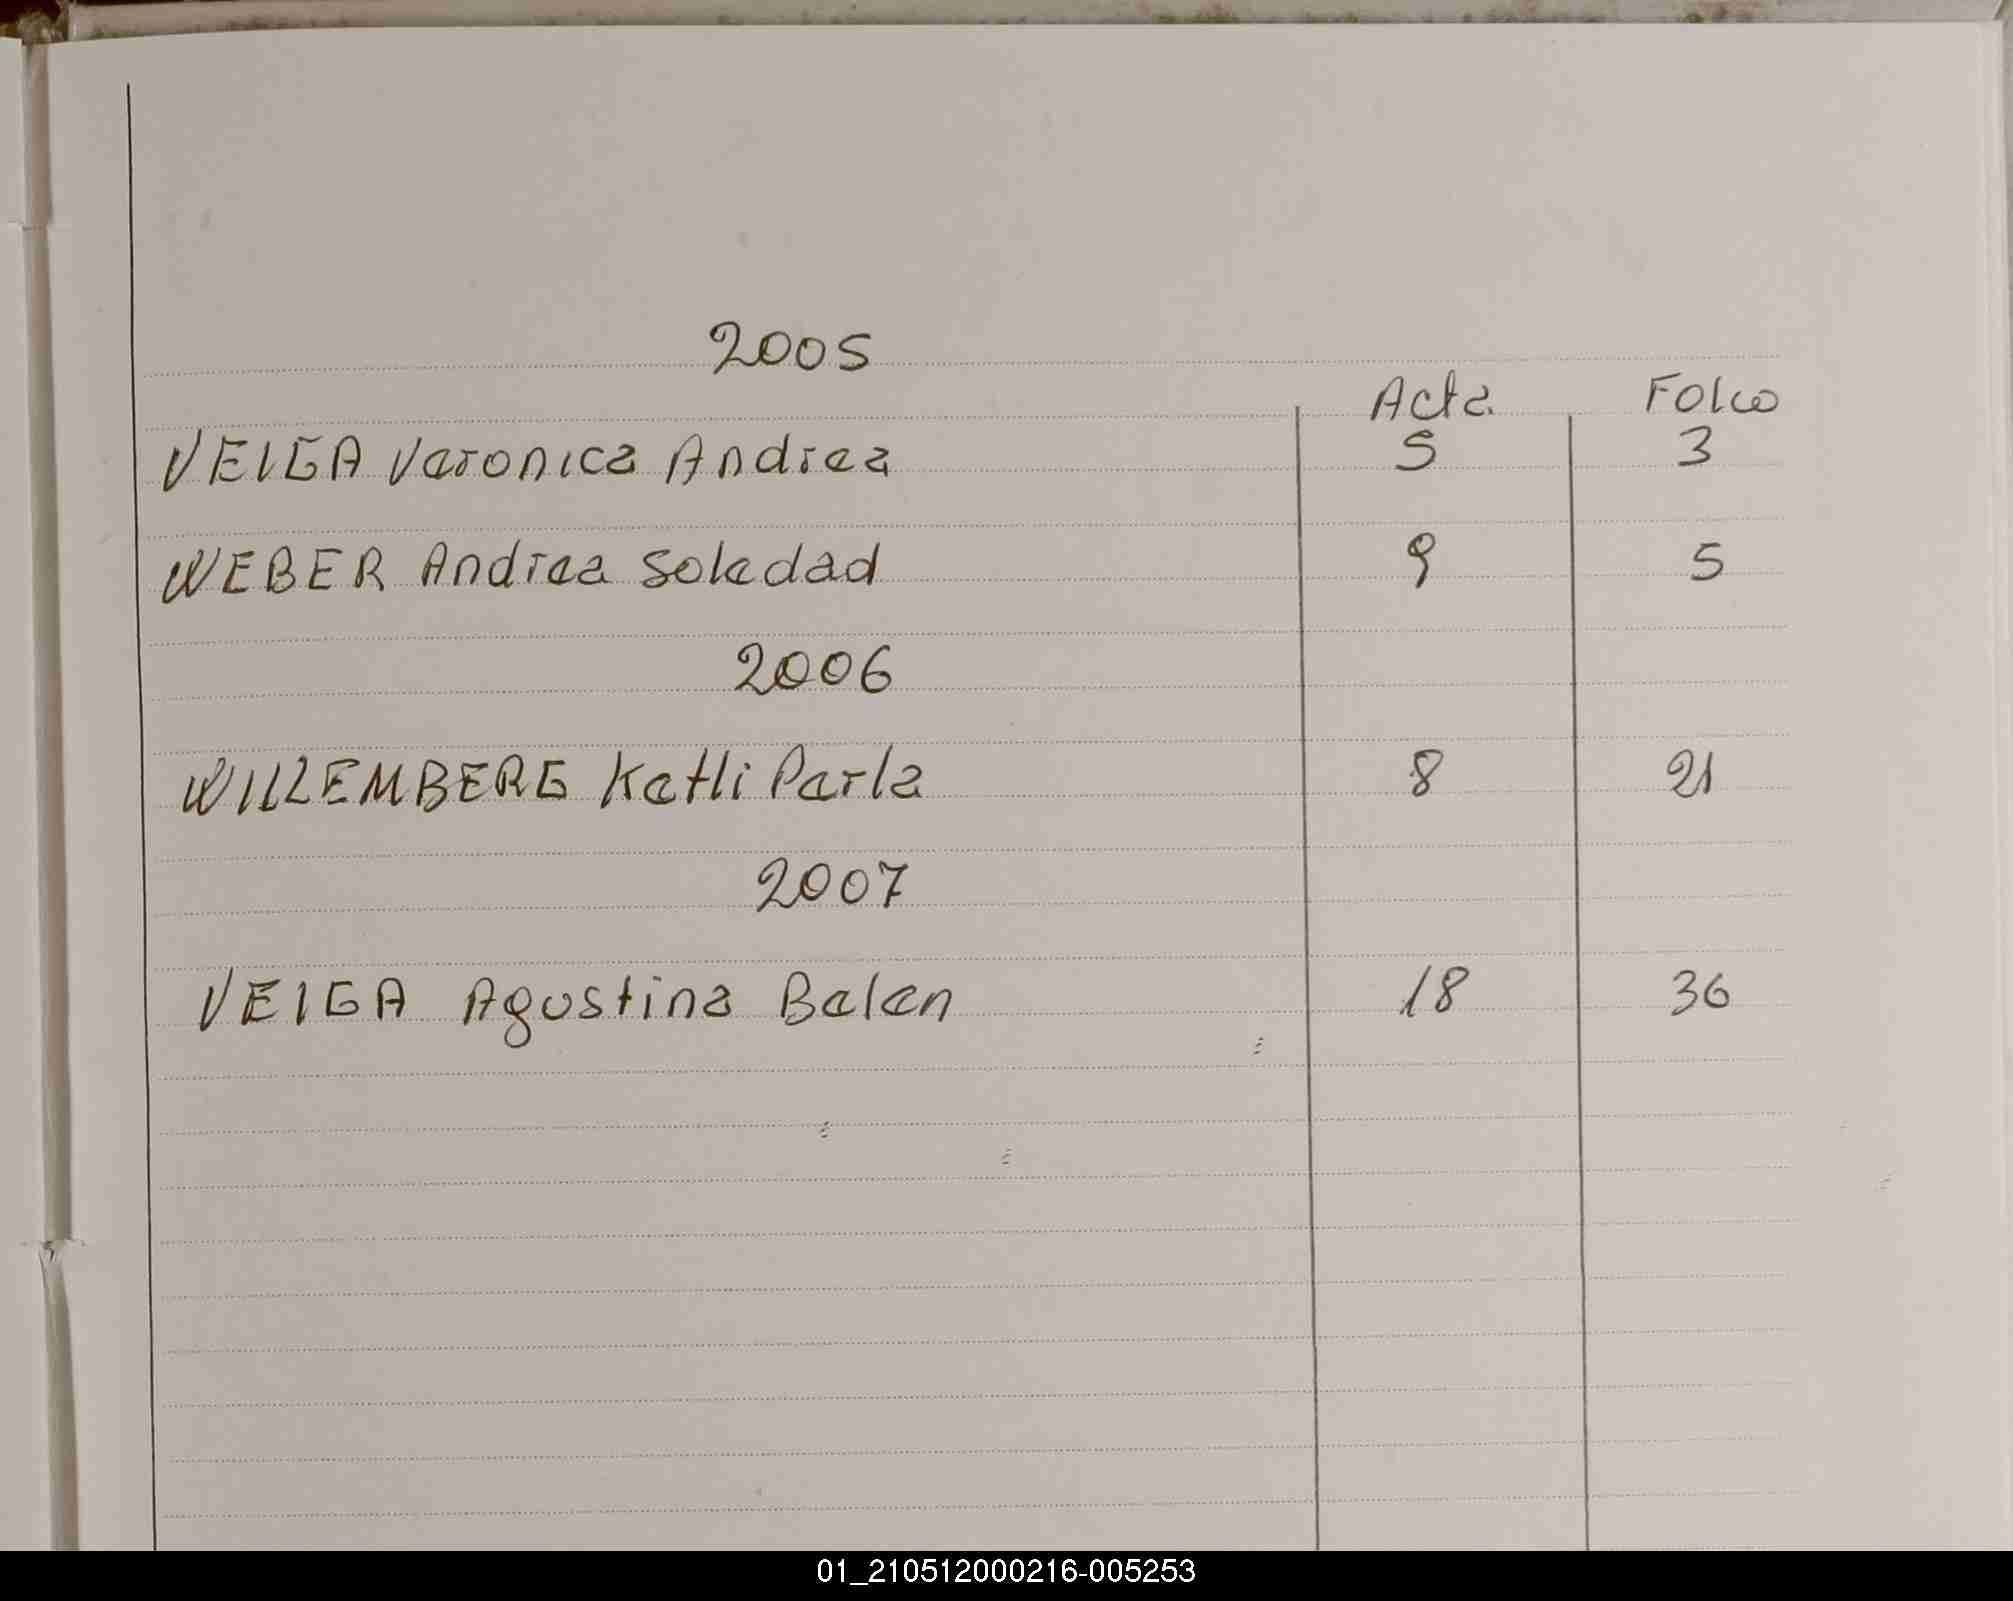 2005
Acta Folio
VEIGA Veronica Andrea 5 3
WEBER Andrea Soledad 9 5
2006
WILLEMBERG Katli Perla 8 21
2007
VEIGA Agustina Belen 18 36
01_210512000216-005253